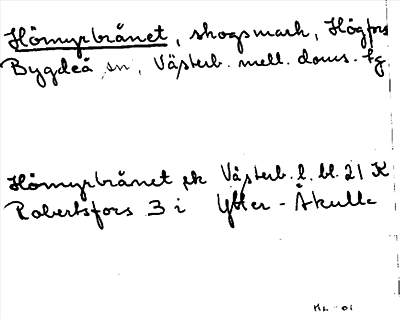 Hömyrbrånet, skogsmark, Högfors
Bygdeå sn, Västerb. mell. doms. tg
Hömyrbrånet ek Västerb. l. bl. 21 K
Robertsfors 3 i Ytter-Åkulla